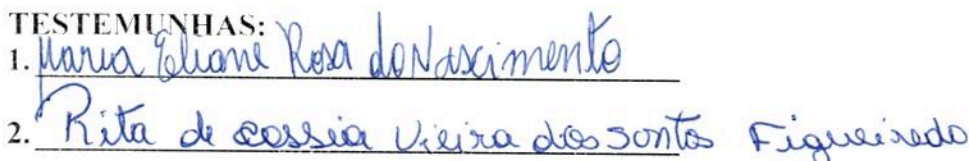 TESTEMUNHAS:
1. Maria Eliane Rosa do Nascimento
2. Rita de cassia Vieira dos santos Figueiredo